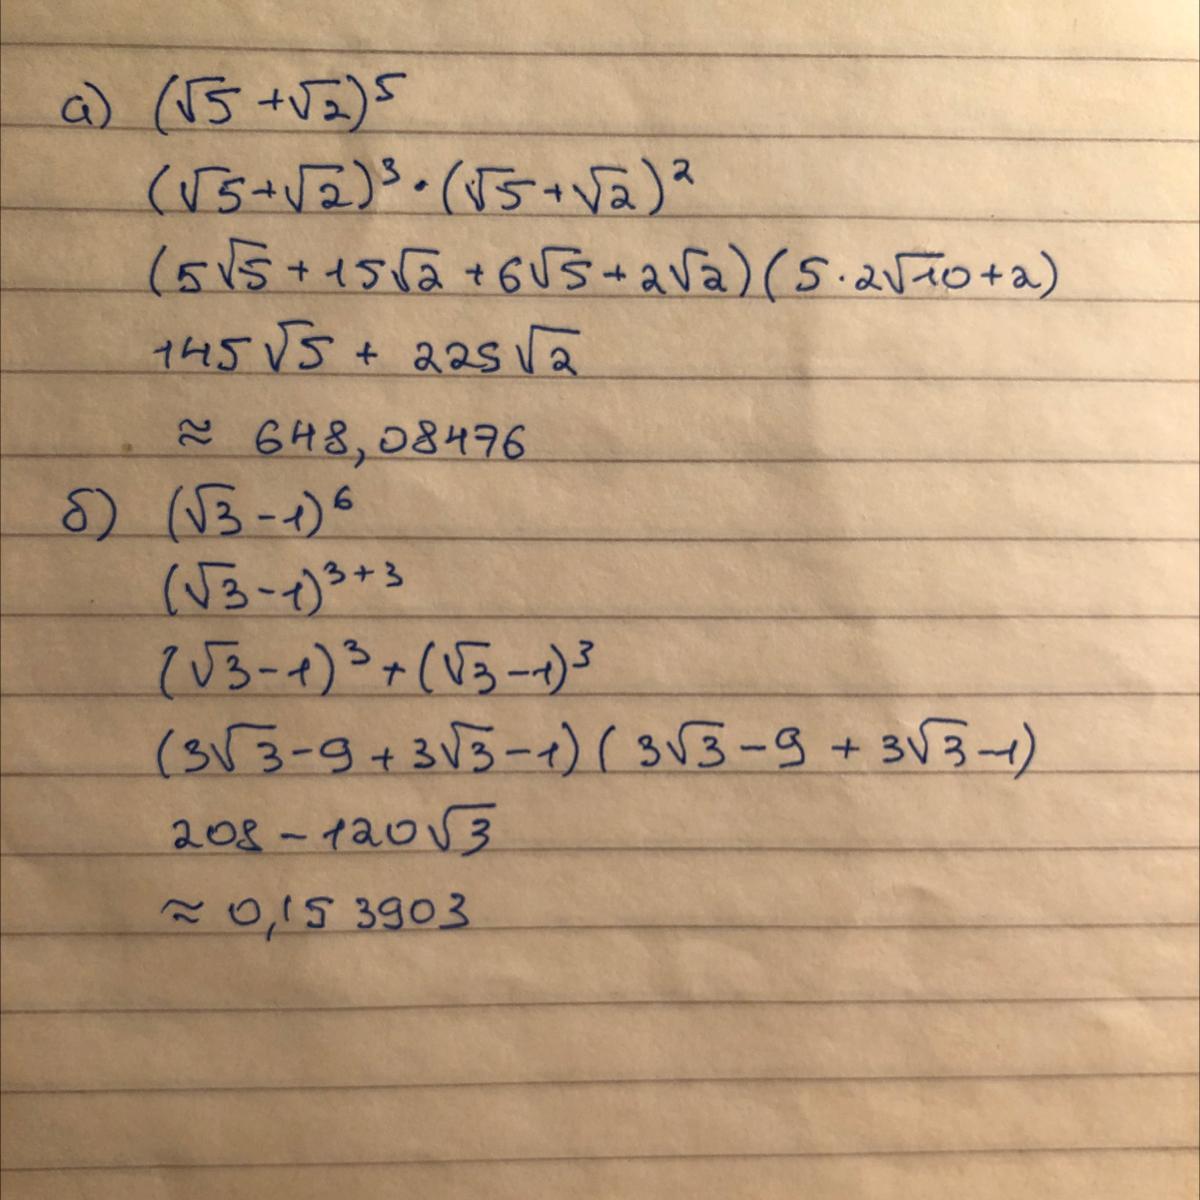 а) (√5 + √2)⁵
(√5 + √2)³ · (√5 + √2)²
(5√5 + 15√2 + 6√5 + 2√2)(5 · 2√10 + 2)
145√5 + 225√2
≈ 648,08476
б) (√3 - 1)⁶
(√3 - 1)³⁺³
(√3 - 1)³ + (√3 - 1)³
(3√3 - 9 + 3√3 - 1)(3√3 - 9 + 3√3 - 1)
208 - 120√3
≈ 0,153903